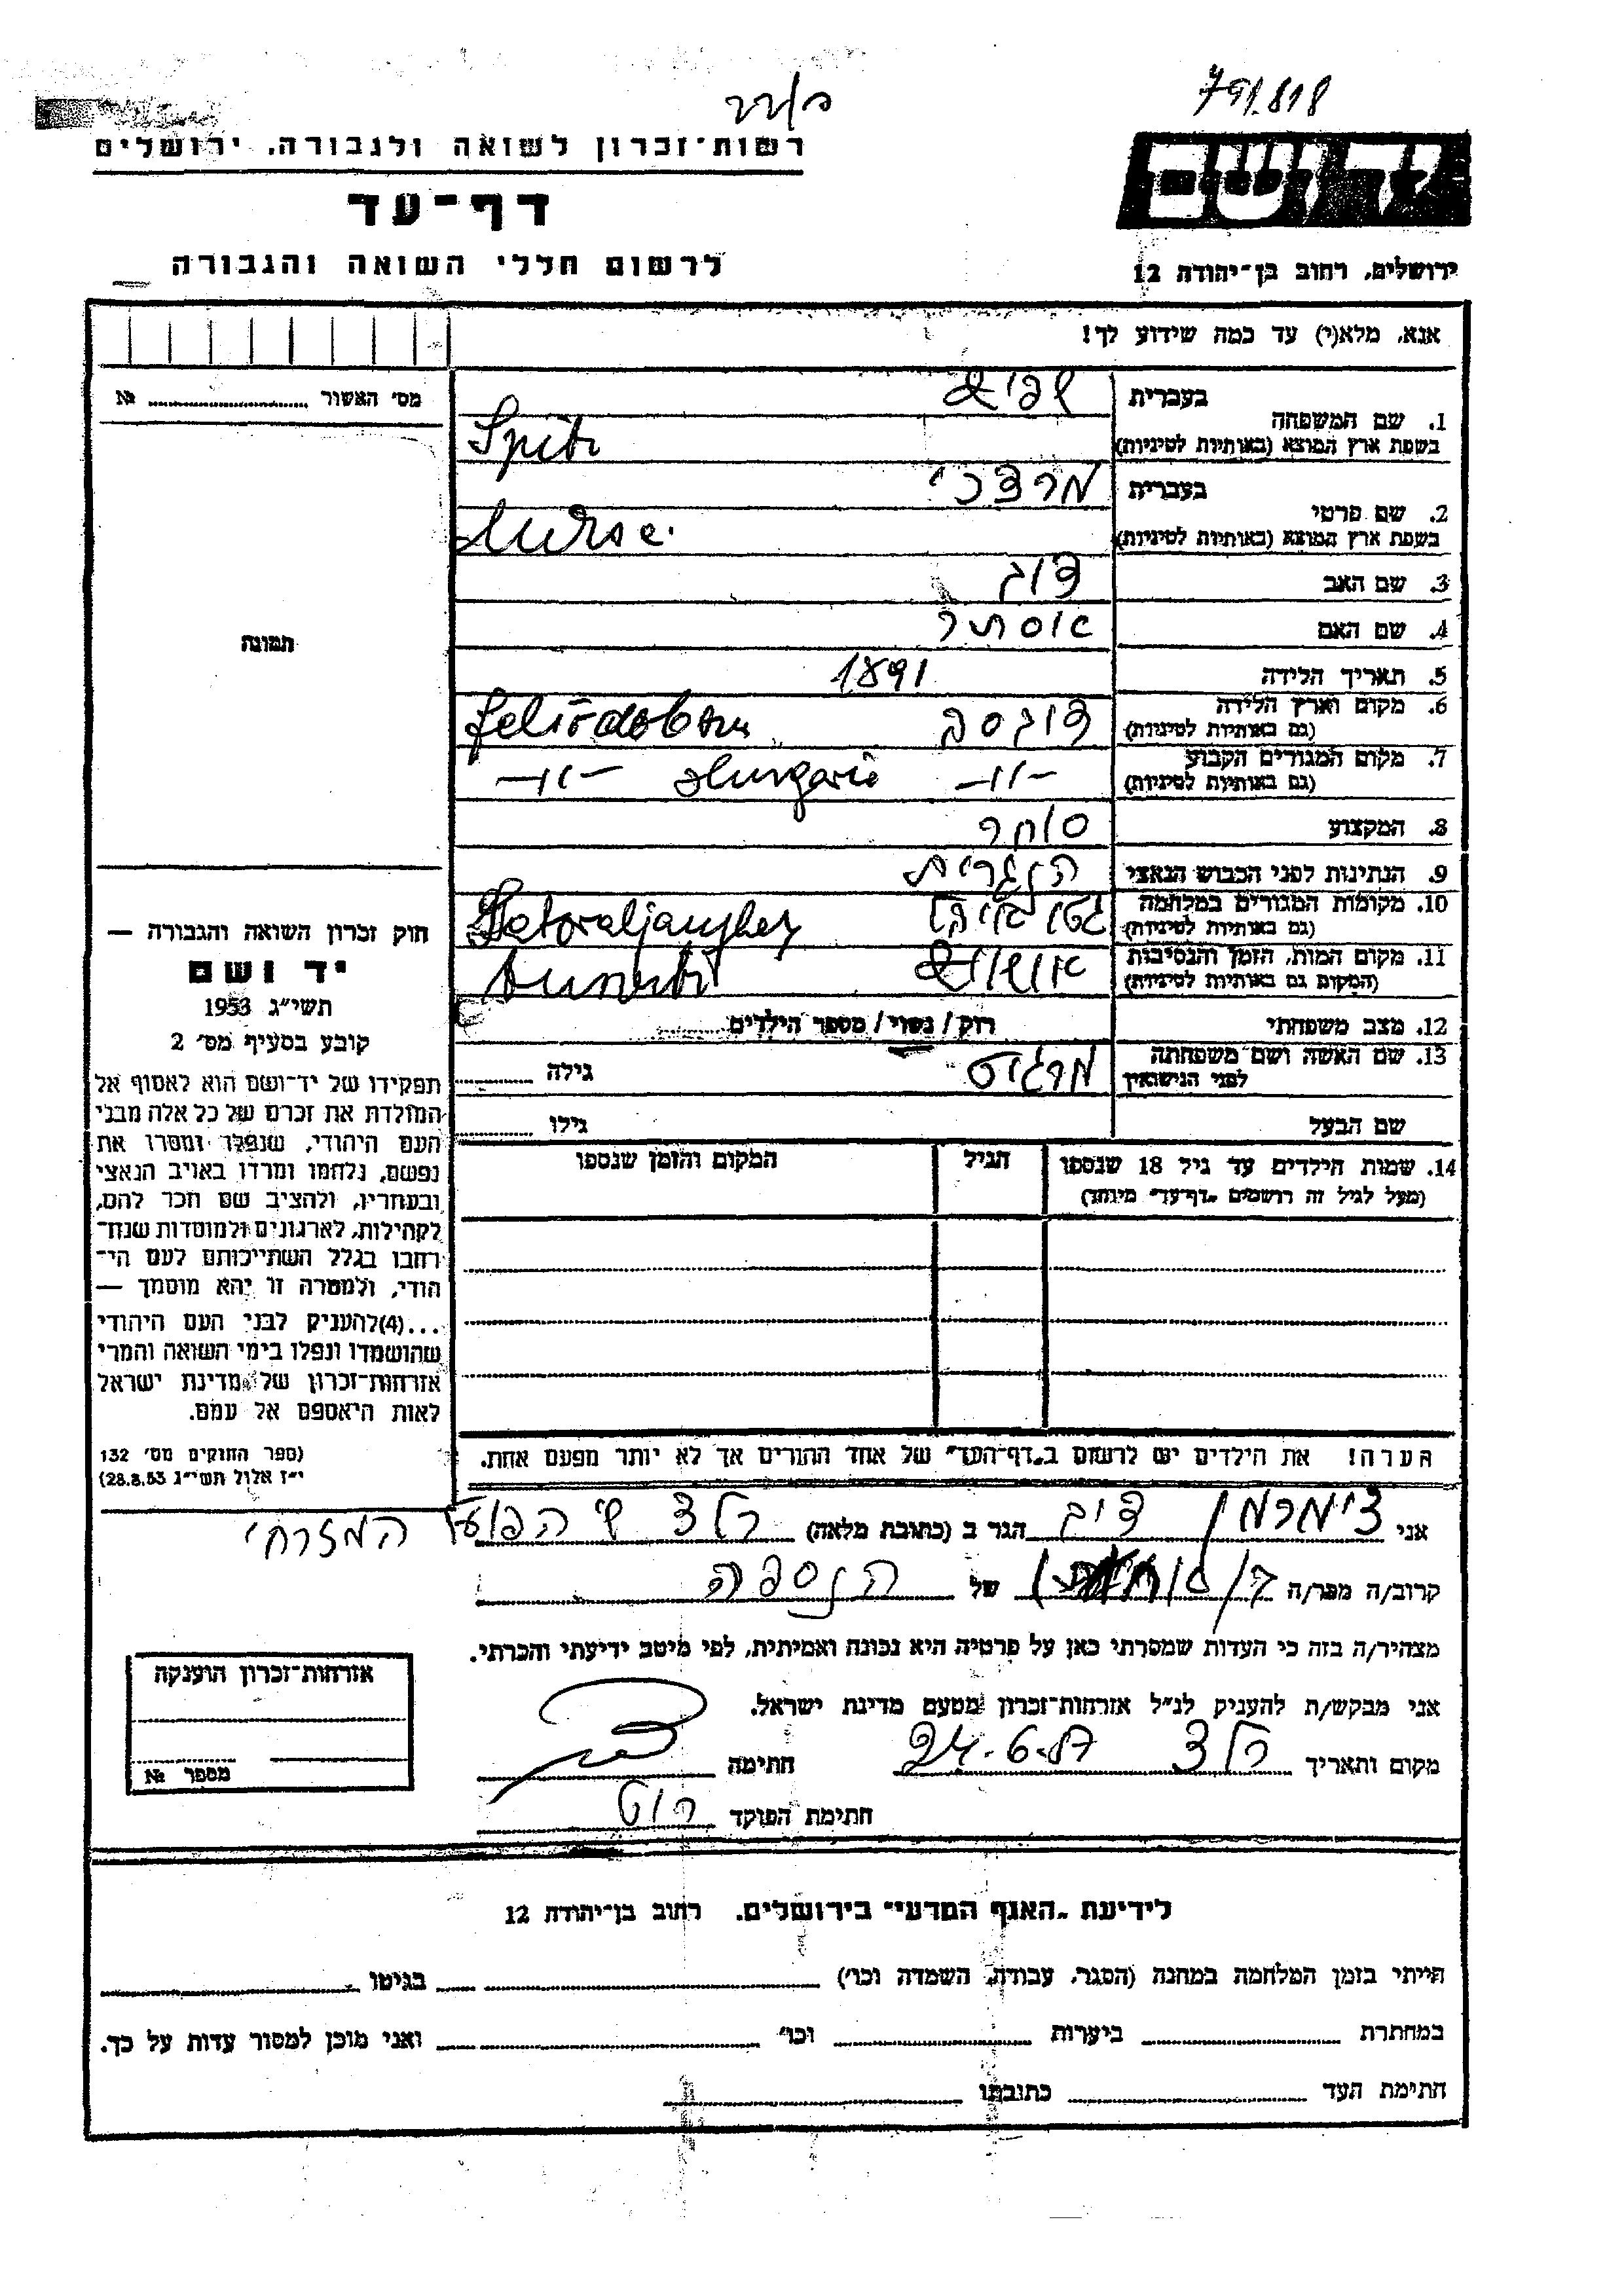 791.818
ב/רר
יד ושם
רשות־זכרון לשואה ולגבורה, ירושלים
דף־עד
לרשום חללי השואה והגבורה
ירושלים, רחוב בן־יהודה 12
אנא, מלא(י) עד כמה שידוע לך!
מס׳ האשור № 
1. שם המשפחה בעברית
שפיץ
בשפת ארץ המוצא (באותיות לטיניות)
Spitz
2. שם פרטי בעברית
מרדכי
בשפת ארץ המוצא (באותיות לטיניות)
3. שם האב דוב
4. שם האם אסתר
5. תאריך הלידה 1891
6. מקום וארץ הלידה
(גם באותיות לטיניות)
7. מקום המגורים הקבוע
(גם באותיות לטיניות)
–״– Hungaria –״–
8. המקצוע סוחר
9. הנתינות לפני הכבוש הנאצי הונגרית
10. מקומות המגורים במלחמה
(גם באותיות לטיניות)
Satoraljaujhey
11. מקום המות, הזמן והנסיבות
(המקום גם באותיות לטיניות)
אושויץ
12. מצב משפחתי רוק / נשוי / מספר הילדים
13. שם האשה ושם משפחתה
לפני הנישואין
מרגיט גילה
שם הבעל גילו
14. שמות הילדים עד גיל 18 שנספו הגיל המקום והזמן שנספו
(מעל לגיל זה רושמים „דף־עד״ מיוחד)
הערה! את הילדים יש לרשום ב„דף־העד״ של אחד ההורים אך לא יותר מפעם אחת.
תמונה
חוק זכרון השואה והגבורה —
יד ושם
תשי״ג 1953
קובע בסעיף מס׳ 2
תפקידו של יד־ושם הוא לאסוף אל
המולדת את זכרם של כל אלה מבני
העם היהודי, שנפלו ומסרו את
נפשם, נלחמו ומרדו באויב הנאצי
ובעוזריו, ולהציב שם וזכר להם,
לקהילות, לארגונים ולמוסדות שנח־
רבו בגלל השתייכותם לעם הי־
הודי, ולמטרה זו יהא מוסמך —
...(4)להעניק לבני העם היהודי
שהושמדו ונפלו בימי השואה והמרי
אזרחות־זכרון של מדינת ישראל
לאות היאספם אל עמם.
(ספר החוקים מס׳ 132
י״ז אלול תשי״ג 28.8.53)
אני צימרמן דוב הגר ב (כתובת מלאה) הפועל המזרחי
קרוב/ה מכר/ה של הנספה
מצהיר/ה בזה כי העדות שמסרתי כאן על פרטיה היא נכונה ואמיתית, לפי מיטב ידיעתי והכרתי.
אני מבקש/ת להעניק לנ״ל אזרחות־זכרון מטעם מדינת ישראל.
מקום ותאריך 24.6.57 חתימה
חתימת הפוקד
אזרחות־זכרון הוענקה
מספר №
לידיעת „האגף המדעי״ בירושלים, רחוב בן־יהודה 12
הייתי בזמן המלחמה במחנה (הסגר, עבודה, השמדה וכו׳) בגיטו
במחתרת ביערות וכו׳ ואני מוכן למסור עדות על כך.
חתימת העד כתובתו